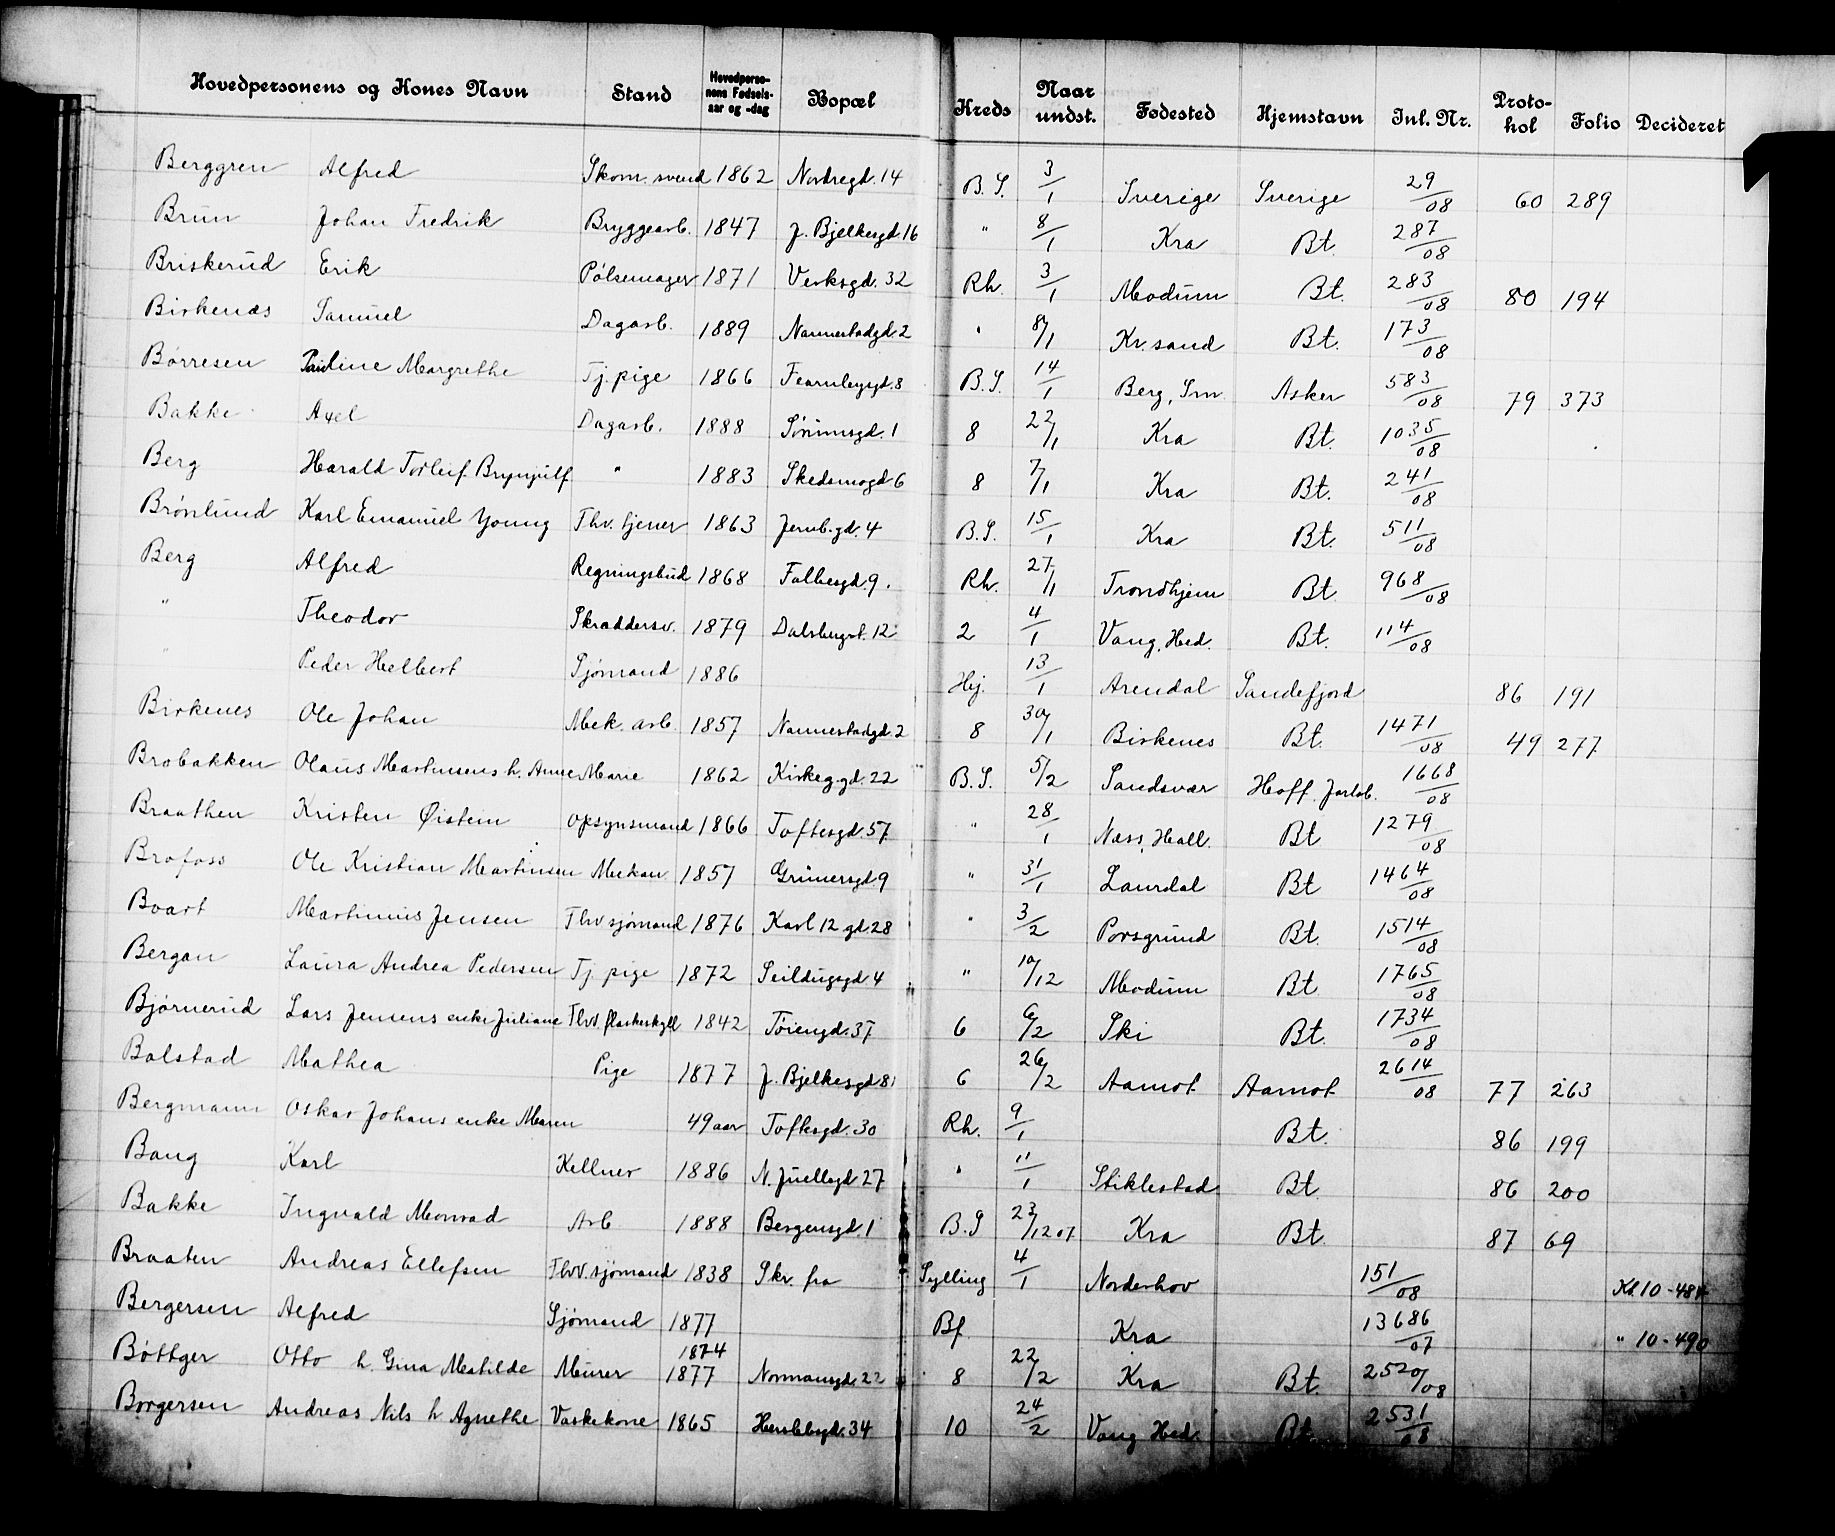 Hovedpersonens og Kones Navn Stand Hovedperso-nens Fødsels-aar og -dag Bopæl Kreds Naar undst. Fødested Hjemstavn Inl. Nr. Proto-kol Folio Decideret
Berggren Alfred Skom. svend 1862 Nordregd. 14 B.S. 3/1 Sverige Sverige 29/08 60 289
Brun Johan Fredrik Bryggearb. 1847 J. Bjelkesgd. 16 " 8/1 Kra Bt. 287/08
Briskerud Erik Pølsemager 1871 Verksgd. 32 Rh. 3/1 Modum Bt. 283/08 80 194
Birkenæs Samuel Dagarb. 1889 Nannestadgd. 2 " 8/1 Kr. sand Bt. 173/08
Børresen Pauline Margrethe Tj. pige 1866 Fearnleysgd. 8 B.S. 14/1 Berg, Sm. Asker 583/08 79 373
Bakke Axel Dagarb. 1888 Sørumsgd. 1 8 22/1 Kra Bt. 1035/08
Berg Harald Torleif Brynjulf " 1883 Skedsmogd 6 8 7/1 Kra Bt. 241/08
Brønlund Karl Emanuel Young Fhv. tjener 1863 Jernb.gd. 4 B.S. 15/1 Kra Bt. 511/08
Berg Alfred Regningsbud 1868 Falbesgd. 9. Rh. 27/1 Trondhjem Bt. 968/08
" Theodor Skræddersv. 1879 Dalsbergst. 12 2 4/1 Vang, Hed. Bt. 114/08
" Peder Helbert Sjømand 1886 Hej. 13/1 Arendal Sandefjord 86 191
Birkenes Ole Johan Mek. arb. 1857 Nannestadgd. 2 8 30/1 Birkenes Bt. 1471/08 49 277
Brobakken Olaus Martinsens h. Anne Marie 1862 Kirkeg.gd. 22 B.S. 5/2 Sandsvær Hoff. Jarlsb. 1668/08
Braathen Kristen Øistein Opsynsmand 1866 Toftesgd. 57 " 28/1 Næss, Hall. Bt 1279/08
Brofoss Ole Kristian Martinsen Mekan 1857 Grünersgd. 9 " 31/1 Laurdal Bt 1464/08
Bvart Martinius Jensen Fhv sjømand 1876 Karl 12 gd. 28 " 3/2 Porsgrund Bt. 1514/08
Bergan Laura Andrea Pedersen Tj. pige 1872 Seildugsgd 4 " 10/12 Modum Bt. 1765/08
Bjørnerud Lars Jensens enke Juliane Fhv. flaskeskyll 1842 Tøiengd. 37 6 6/2 Ski Bt. 1734/08
Bolstad Mathea Pige 1877 J. Bjelkesgd 81 6 26/2 Aamot Aamot 2614/08 77 263
Bergmann Oskar Johans enke Maren 49 aar Toftesgd. 30 Rh. 9/1 Bt. 86 199
Bang Karl Kellner 1886 N. Juellsgd 27 " 11/1 Stiklestad Bt. 86 200
Bakke Ingvald Monrad Arb 1888 Bergensgd. 1 B.S 23/12 07 Kra Bt. 87 69
Braaten Andreas Ellefsen Fhv. sjømand 1838 Skr. fra Sylling 4/1 Norderhov 151/08 Kl. 10-484
Bergersen Alfred Sjømand 1877 Bf. Kra 13686/07 " 10-490
Bøttger Otto h. Gina Matilde Murer 1874 1877 Normansgd. 22 8 22/2 Kra Bt. 2520/08
Borgersen Andreas Nils h Agnethe Vaskekone 1865 Herslebsgd. 34 10 24/2 Vang Hed. Bt. 2531/08